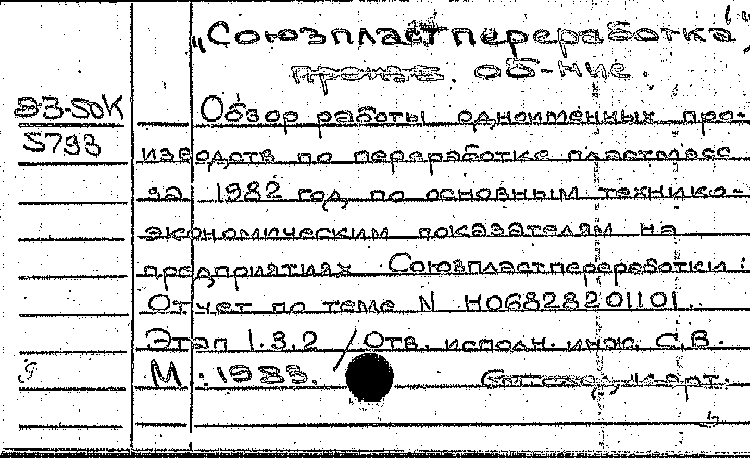 "Союзпластпереработка",
произв. об-ние.
Э3-50К Обзор работы одноименных про-
5793 изводств по переработке пластмасс
за 1982 год по основным технико-
экономическим показателям на
предприятиях Союзпластпереработки:
Отчет по теме N Н06828201101.
Этап 1.3.2 / Отв. исполн. инж. С.В.
М.: 1983.